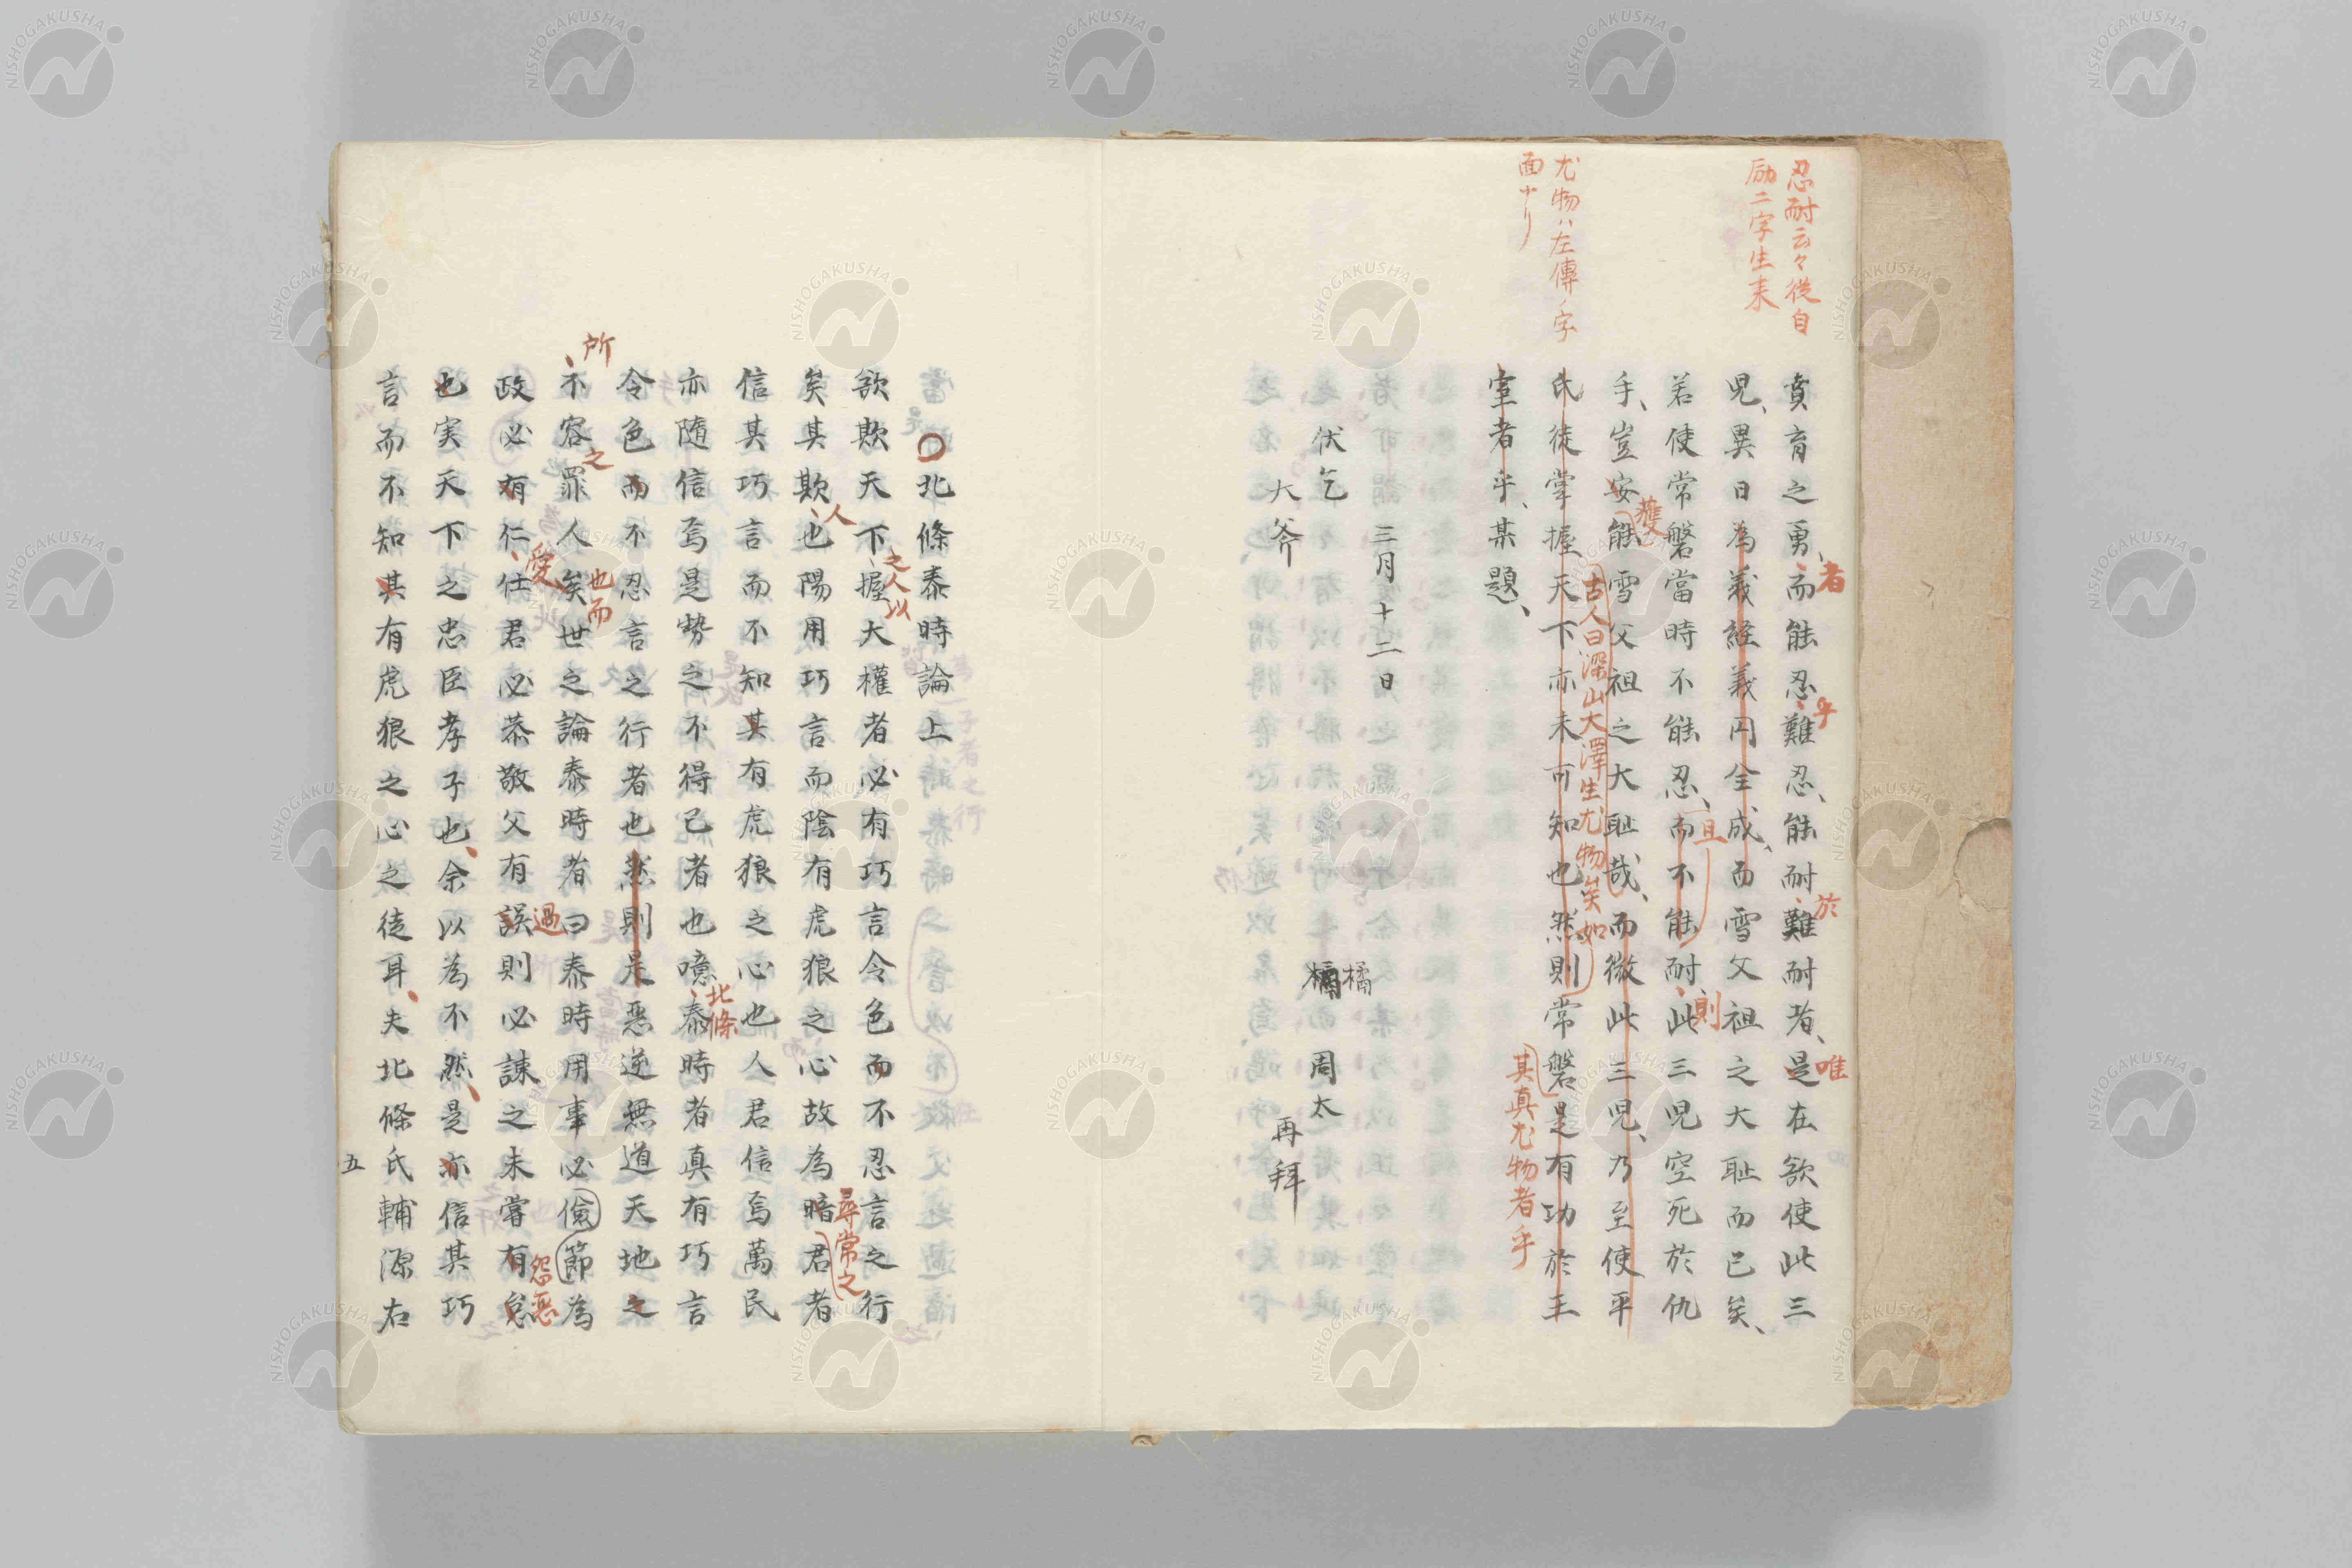 忍耐云々従自
励二字生来
尤物ハ左傳ノ字
面ナリ
賁育之勇、而能忍難忍、能耐難耐者、是在欲使此三
者
乎
於
唯
児、異日為義経義円全成、而雪父祖之大耻而已矣、
若使常磐當時不能忍、而不能耐、此三児空死於仇
且
則
手、豈安能雪父祖之大耻哉、而微此三児、乃至使平
獲
古人曰深山大澤生尤物矣如
氏徒掌握天下亦未可知也然則常磐是有功於王
其真尤物者乎
室者乎、某題、
三月十二日
伏乞
橘
橘周太
大斧
再拜
北條泰時論上
欲欺天下握大權者必有巧言令色而不忍言之行
之人以
矣其欺也陽用巧言而陰有虎狼之心故為暗君者
人
尋常之
信其巧言而不知其有虎狼之心也人君信焉萬民
亦隨信焉是勢之不得已者也噫泰時者真有巧言
北條
令色而不忍言之行者也然則是惡逆無道天地之
不容罪人矣世之論泰時者曰泰時用事必儉節為
所
之
也而
政必有仁仕君必恭敬父有誤則必諫之未嘗有怠
愛
過
怨惡
也実天下之忠臣孝子也、余以為不然、是亦信其巧
言而不知其有虎狼之心之徒耳、夫北條氏輔源右
五
NISHOGAKUSHA